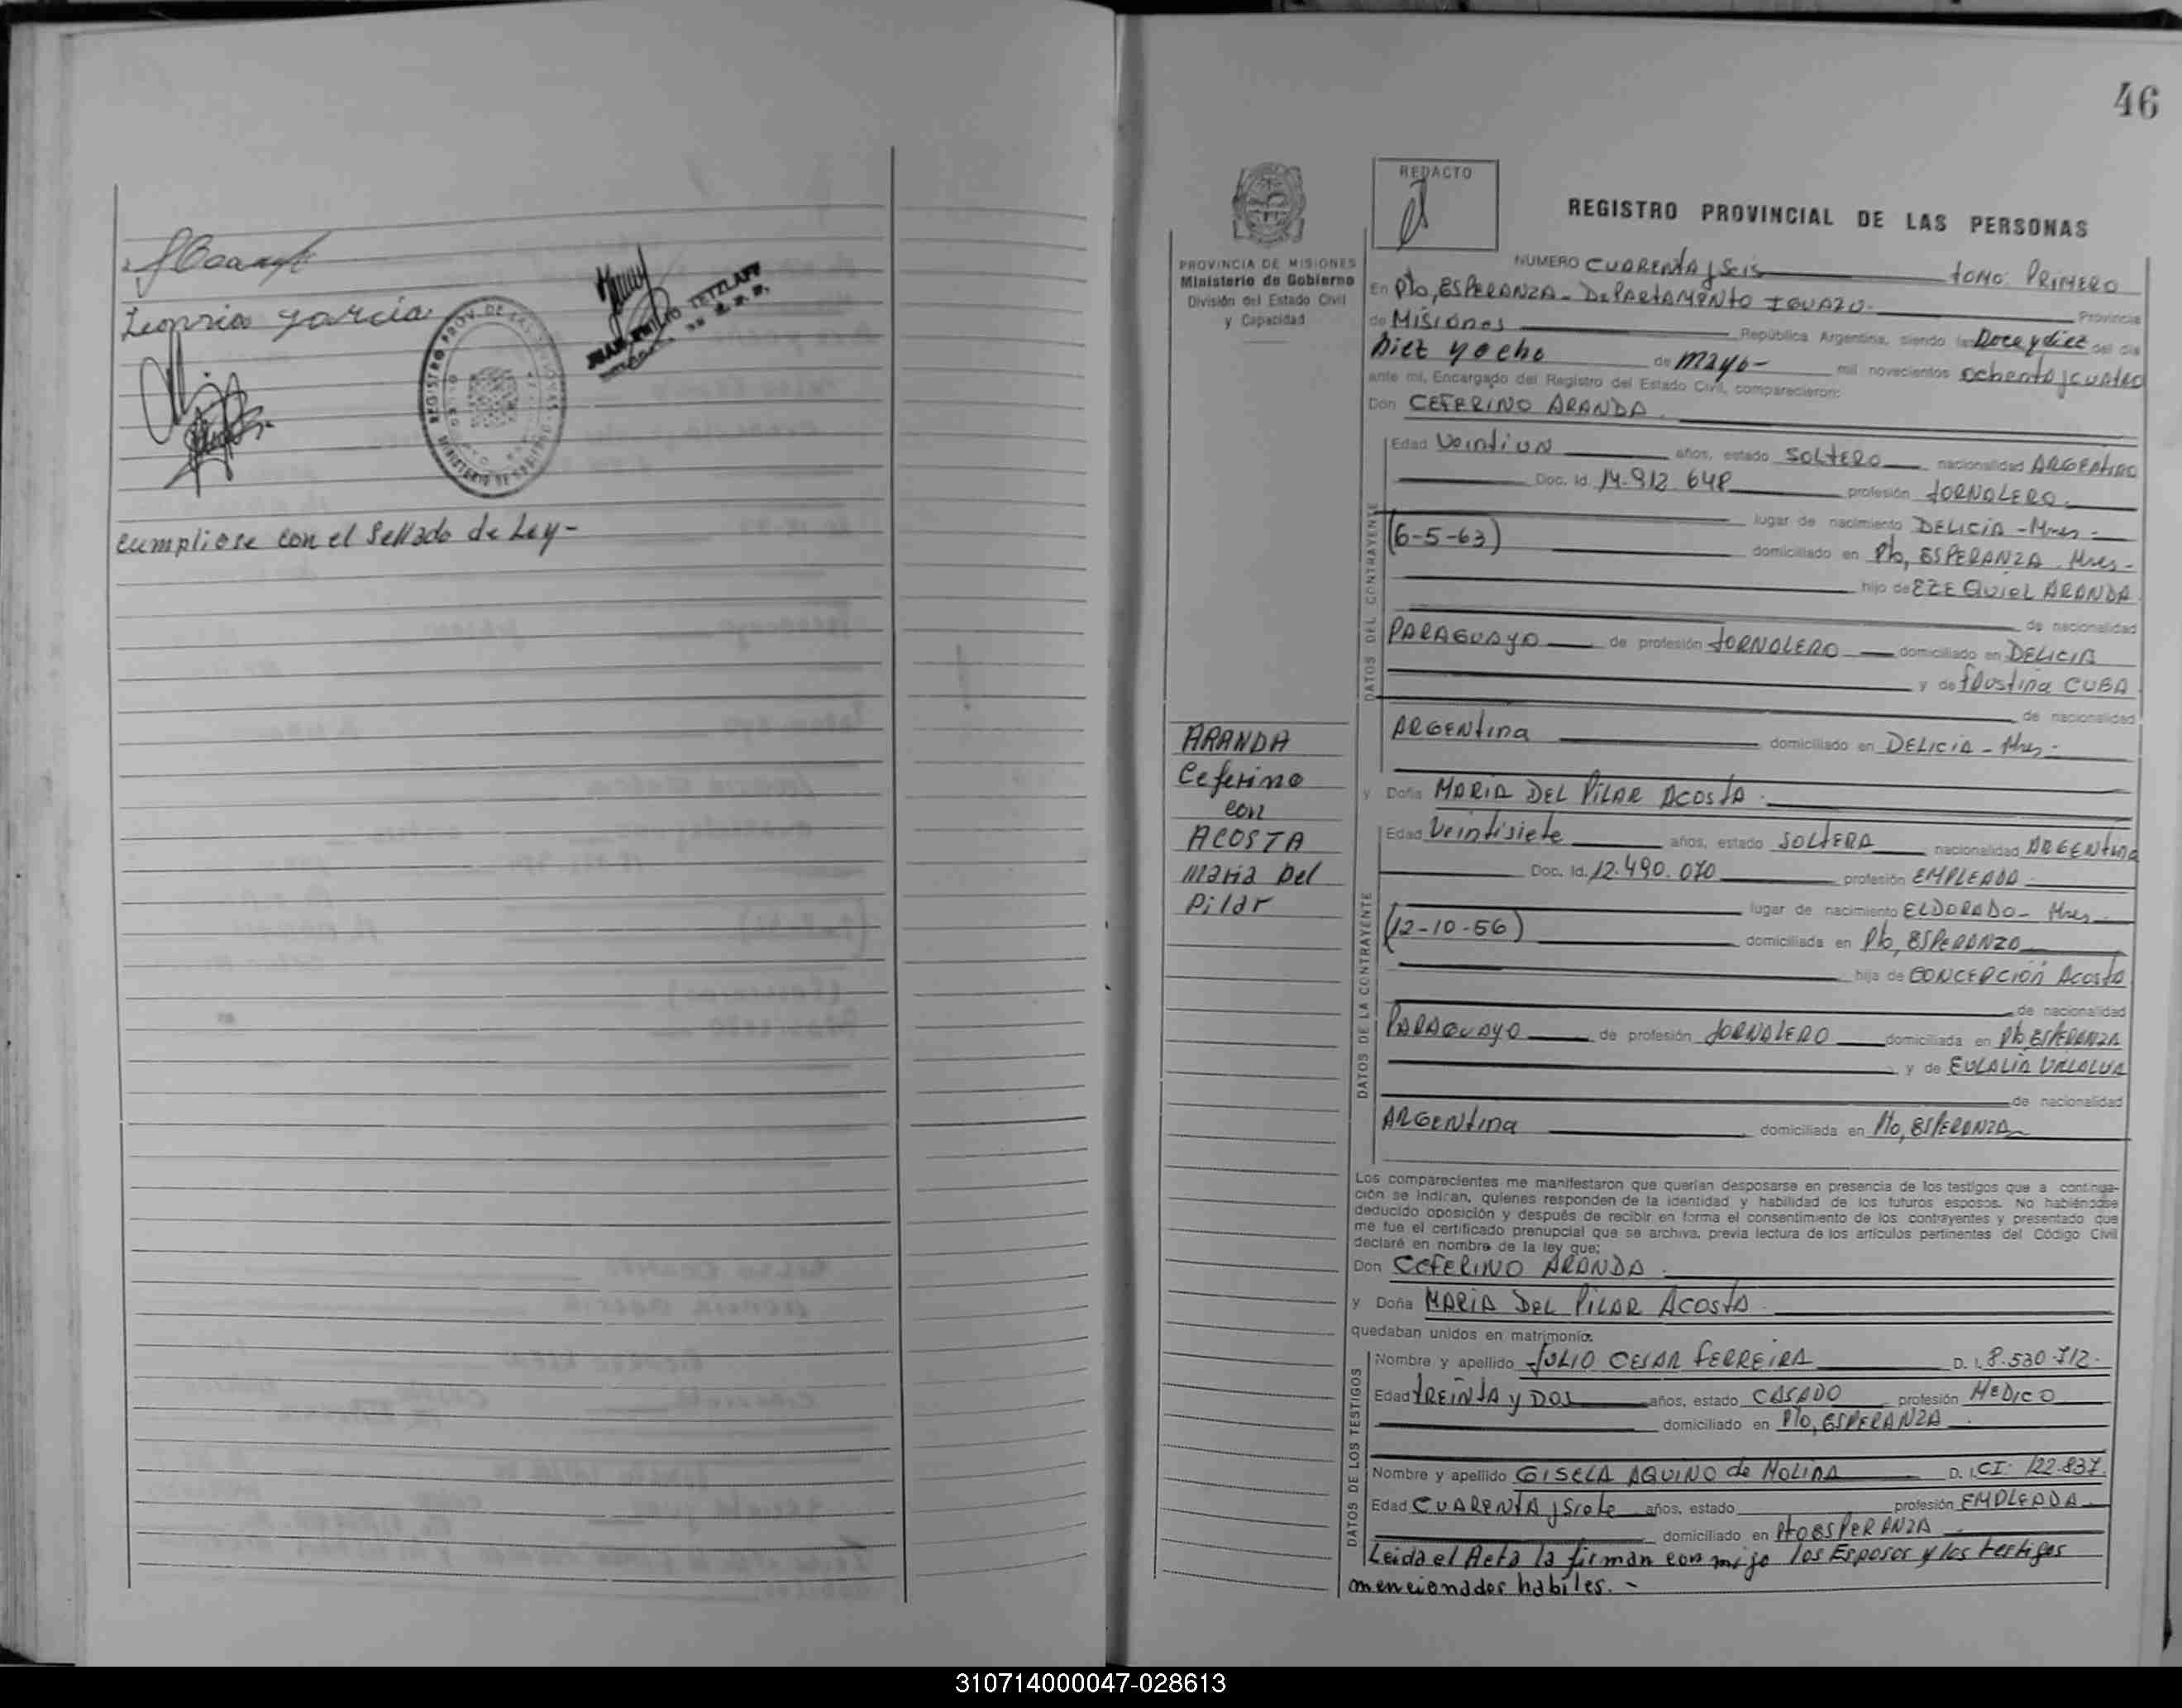 Leonora Garcia
REGISTRO PROV. DE LAS
MINISTERIO DE GOBIERNO
JUAN EMILIO TETZLAFF
cumpliose con el Sellado de Ley-
46
REDACTO
REGISTRO PROVINCIAL DE LAS PERSONAS
PROVINCIA DE MISIONES
Ministerio de Gobierno
División del Estado Civil
y Capacidad
NUMERO CUARENTA y Seis tomo: PRIMERO
En Pto, ESPERANZA - DEPARTAMENTO IGUAZU. Provincia
de Misiones República Argentina, siendo las Doce y diez del día
Diez y ocho de mayo- mil novecientos ochenta y cuatro
ante mí, Encargado del Registro del Estado Civil, comparecieron:
Don CEFERINO ARANDA.
DATOS DEL CONTRAYENTE
Edad Veintiun años, estado SOLTERO nacionalidad ARGENTINO
Doc. Id. 14.912.648 profesión JORNALERO.
lugar de nacimiento DELICIA - Mnes -
(6-5-63) domiciliado en Pto, ESPERANZA. Mnes -
hijo de EZEQUIEL ARANDA
de nacionalidad
PARAGUAYO de profesión JORNALERO domiciliado en DELICIA
y de Faustina CUBA
de nacionalidad
ARGENtina domiciliado en DELICIA - Mnes -
ARANDA
Ceferino
con
ACOSTA
Maria Del
Pilar
y Doña MARIA DEL PILAR ACOSTA.
DATOS DE LA CONTRAYENTE
Edad Veintisiete años, estado SOLTERA nacionalidad ARGENtina
Doc. Id. 12.490.070 profesión EMPLEADA
lugar de nacimiento ELDORADO - Mnes
(12-10-56) domiciliada en Pto, ESPERANZA
hija de CONCEPCIÓN ACOSTA
de nacionalidad
PARAGUAYO de profesión JORNALERO domiciliada en Pto, ESPERANZA
y de EULALIA
de nacionalidad
ARGENtina domiciliada en Pto, ESPERANZA
Los comparecientes me manifestaron que querían desposarse en presencia de los testigos que a continua-
ción se indican, quienes responden de la identidad y habilidad de los futuros esposos. No habiéndose
deducido oposición y después de recibir en forma el consentimiento de los contrayentes y presentado que
me fue el certificado prenupcial que se archiva, previa lectura de los artículos pertinentes del Código Civil
declaré en nombre de la ley que:
Don CEFERINO ARANDA.
y Doña MARIA DEL PILAR ACOSTA.
quedaban unidos en matrimonio.
DATOS DE LOS TESTIGOS
Nombre y apellido JULIO CESAR FERREIRA D. I. 8.530.712.
Edad TREINTA y DOS años, estado CASADO profesión MEDICO
domiciliado en Pto, ESPERANZA.
Nombre y apellido GISELA AQUINO de MOLINA D. I. CI. 122.837.
Edad CUARENTA y Siete años, estado profesión EMPLEADA
domiciliado en Pto ESPERANZA
Leida el Acta la firman con migo los Esposos y los testigos
mencionados habiles. -
310714000047-028613